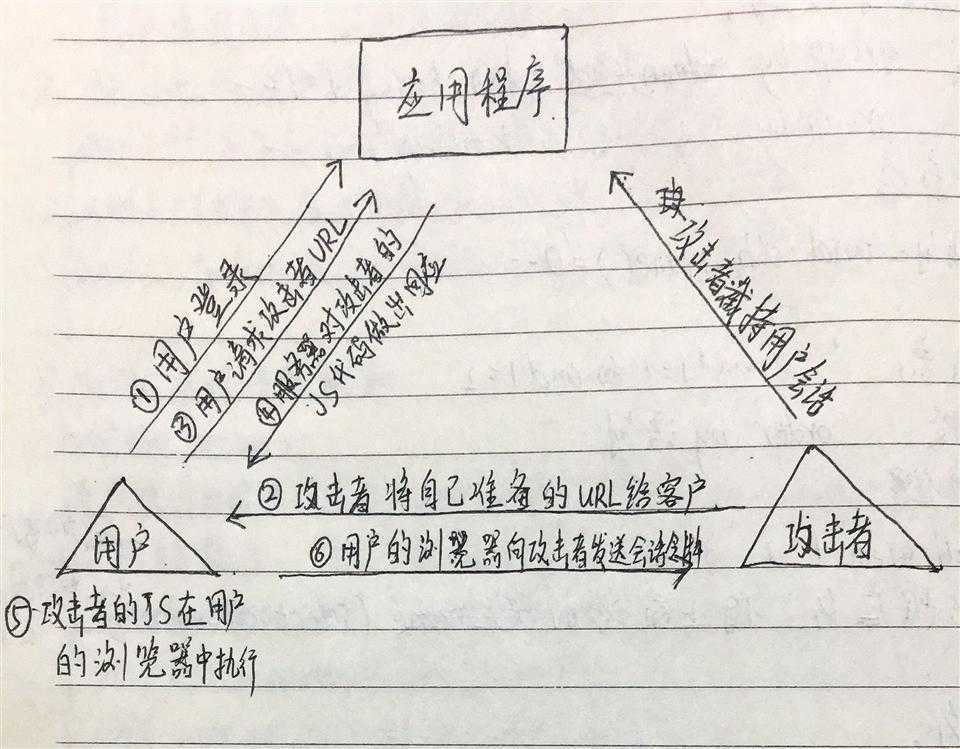 应用程序
①用户登录
③用户请求攻击者URL
④服务器对攻击者的
JS代码做出回应
攻击者截持用户会话
②攻击者将自己准备的URL给客户
用户
攻击者
⑥用户的浏览器向攻击者发送会话
⑤攻击者的JS在用户
的浏览器中执行